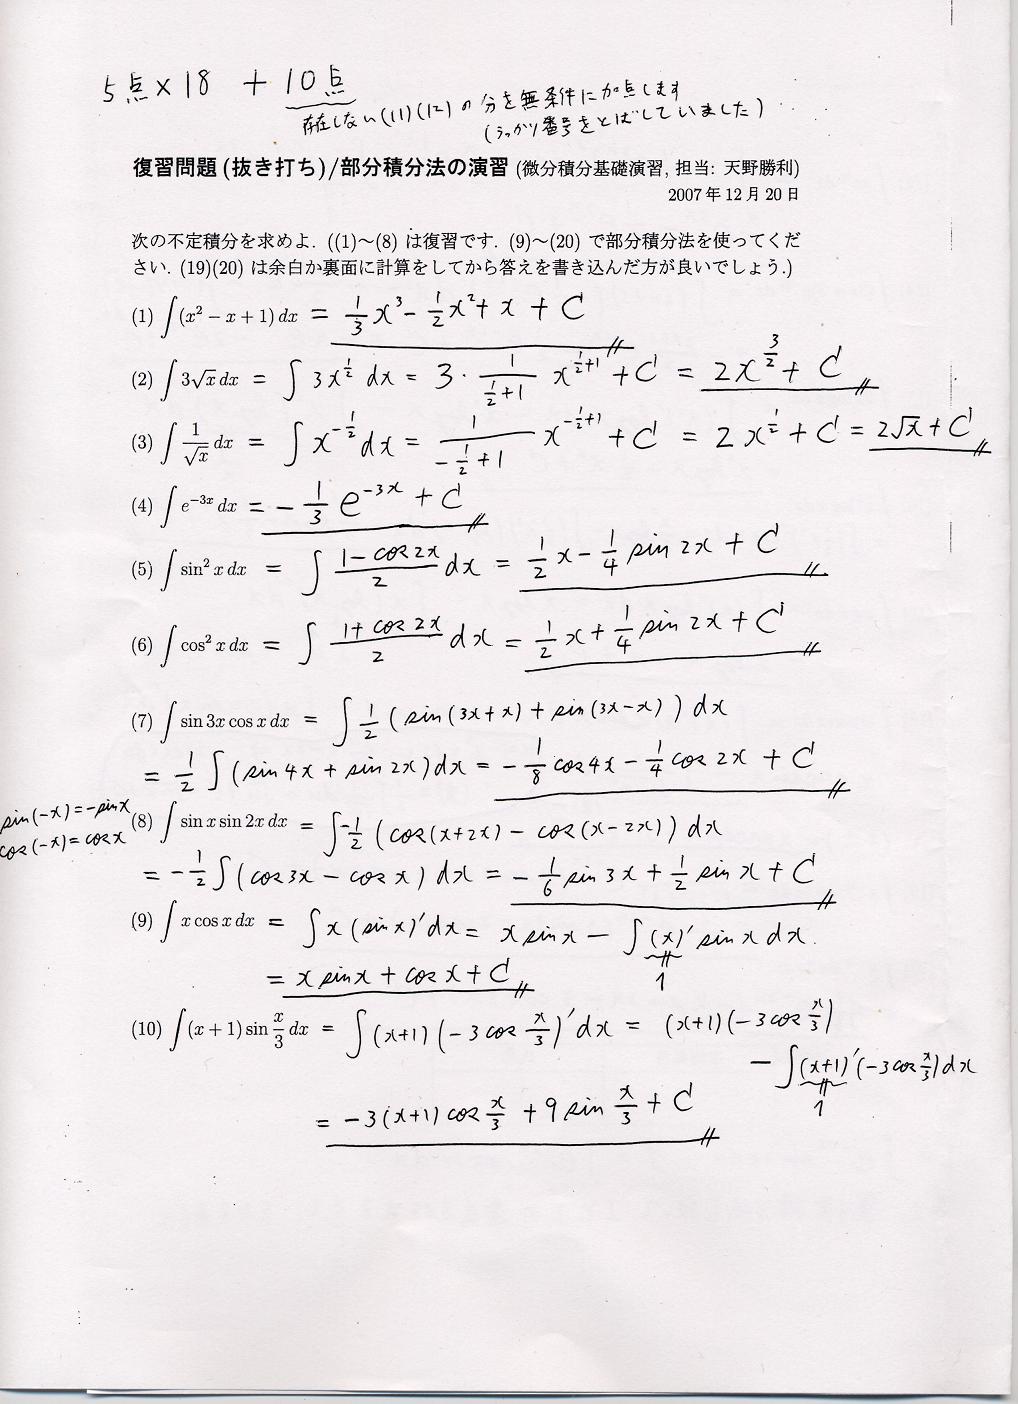 5点×18 + 10点
存在しない(11)(12)の分を無条件に加点します
(うっかり番号をとばしていました)
復習問題 (抜き打ち)/部分積分法の演習 (微分積分基礎演習, 担当: 天野勝利)
2007 年 12 月 20 日
次の不定積分を求めよ. ((1)〜(8) は復習です. (9)〜(20) で部分積分法を使ってくだ
さい. (19)(20) は余白か裏面に計算をしてから答えを書き込んだ方が良いでしょう.)
(1) ∫(x² − x + 1) dx = 1/3 x³ − 1/2 x² + x + C
(2) ∫ 3√x dx = ∫ 3x^{1/2} dx = 3 · 1/(1/2+1) x^{1/2+1} + C = 2x^{3/2} + C
(3) ∫ 1/√x dx = ∫ x^{−1/2} dx = 1/(−1/2+1) x^{−1/2+1} + C = 2x^{1/2} + C = 2√x + C
(4) ∫ e^{−3x} dx = −1/3 e^{−3x} + C
(5) ∫ sin² x dx = ∫ (1−cos 2x)/2 dx = 1/2 x − 1/4 sin 2x + C
(6) ∫ cos² x dx = ∫ (1+cos 2x)/2 dx = 1/2 x + 1/4 sin 2x + C
(7) ∫ sin 3x cos x dx = ∫ 1/2 (sin(3x+x) + sin(3x−x)) dx
= 1/2 ∫ (sin 4x + sin 2x) dx = −1/8 cos 4x − 1/4 cos 2x + C
sin(−x) = −sin x
cos(−x) = cos x
(8) ∫ sin x sin 2x dx = ∫ −1/2 (cos(x+2x) − cos(x−2x)) dx
= −1/2 ∫ (cos 3x − cos x) dx = −1/6 sin 3x + 1/2 sin x + C
(9) ∫ x cos x dx = ∫ x (sin x)′ dx = x sin x − ∫ (x)′ sin x dx.
1
= x sin x + cos x + C
(10) ∫(x + 1) sin x/3 dx = ∫ (x+1) (−3 cos x/3)′ dx = (x+1)(−3 cos x/3)
− ∫ (x+1)′ (−3 cos x/3) dx
1
= −3(x+1) cos x/3 + 9 sin x/3 + C